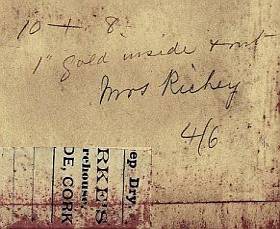 10 + 8.
1" gold inside & out
Mrs Richey
4/6
ep Dry
RKE'S
rehouse
DE, CORK